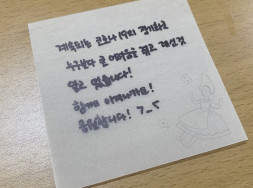 계속되는 코로나19의 장기화로
누구보다 큰 어려움을 겪고 계실것
알고 있습니다!
함께 이겨내가요!
응원합니다! 7_5